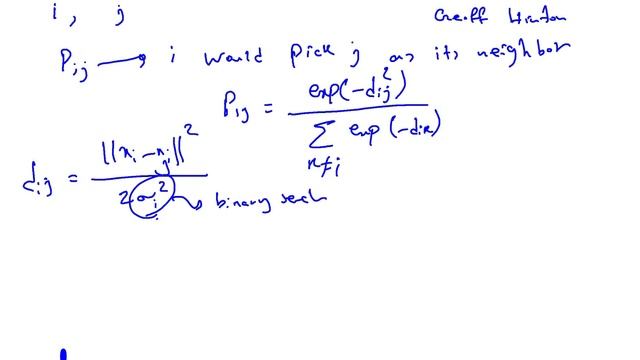 i , j
Geoff Hinton
P_{ij} → i would pick j as its neighbor
P_{ij} = exp(-d_{ij}^2) / Σ_{k≠i} exp(-d_{ik})
d_{ij} = ||x_i - x_j||^2 / 2σ_i^2 → binary serch